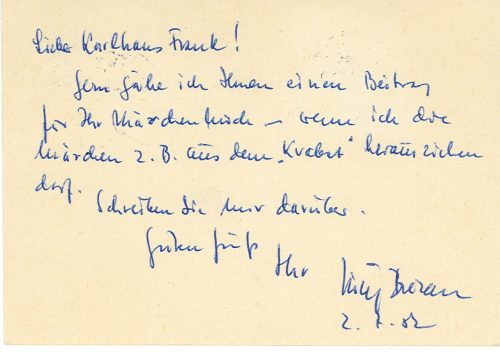 Lieber Karlhans Frank!
Gern gäbe ich Ihnen einen Beitrag
für Ihr Märchenbuch – wenn ich die
Märchen z.B. aus dem „Krabat“ herausziehen
darf.
Schreiben Sie mir darüber.
Guten Gruß
Ihr Jurij Brězan
2.7.82